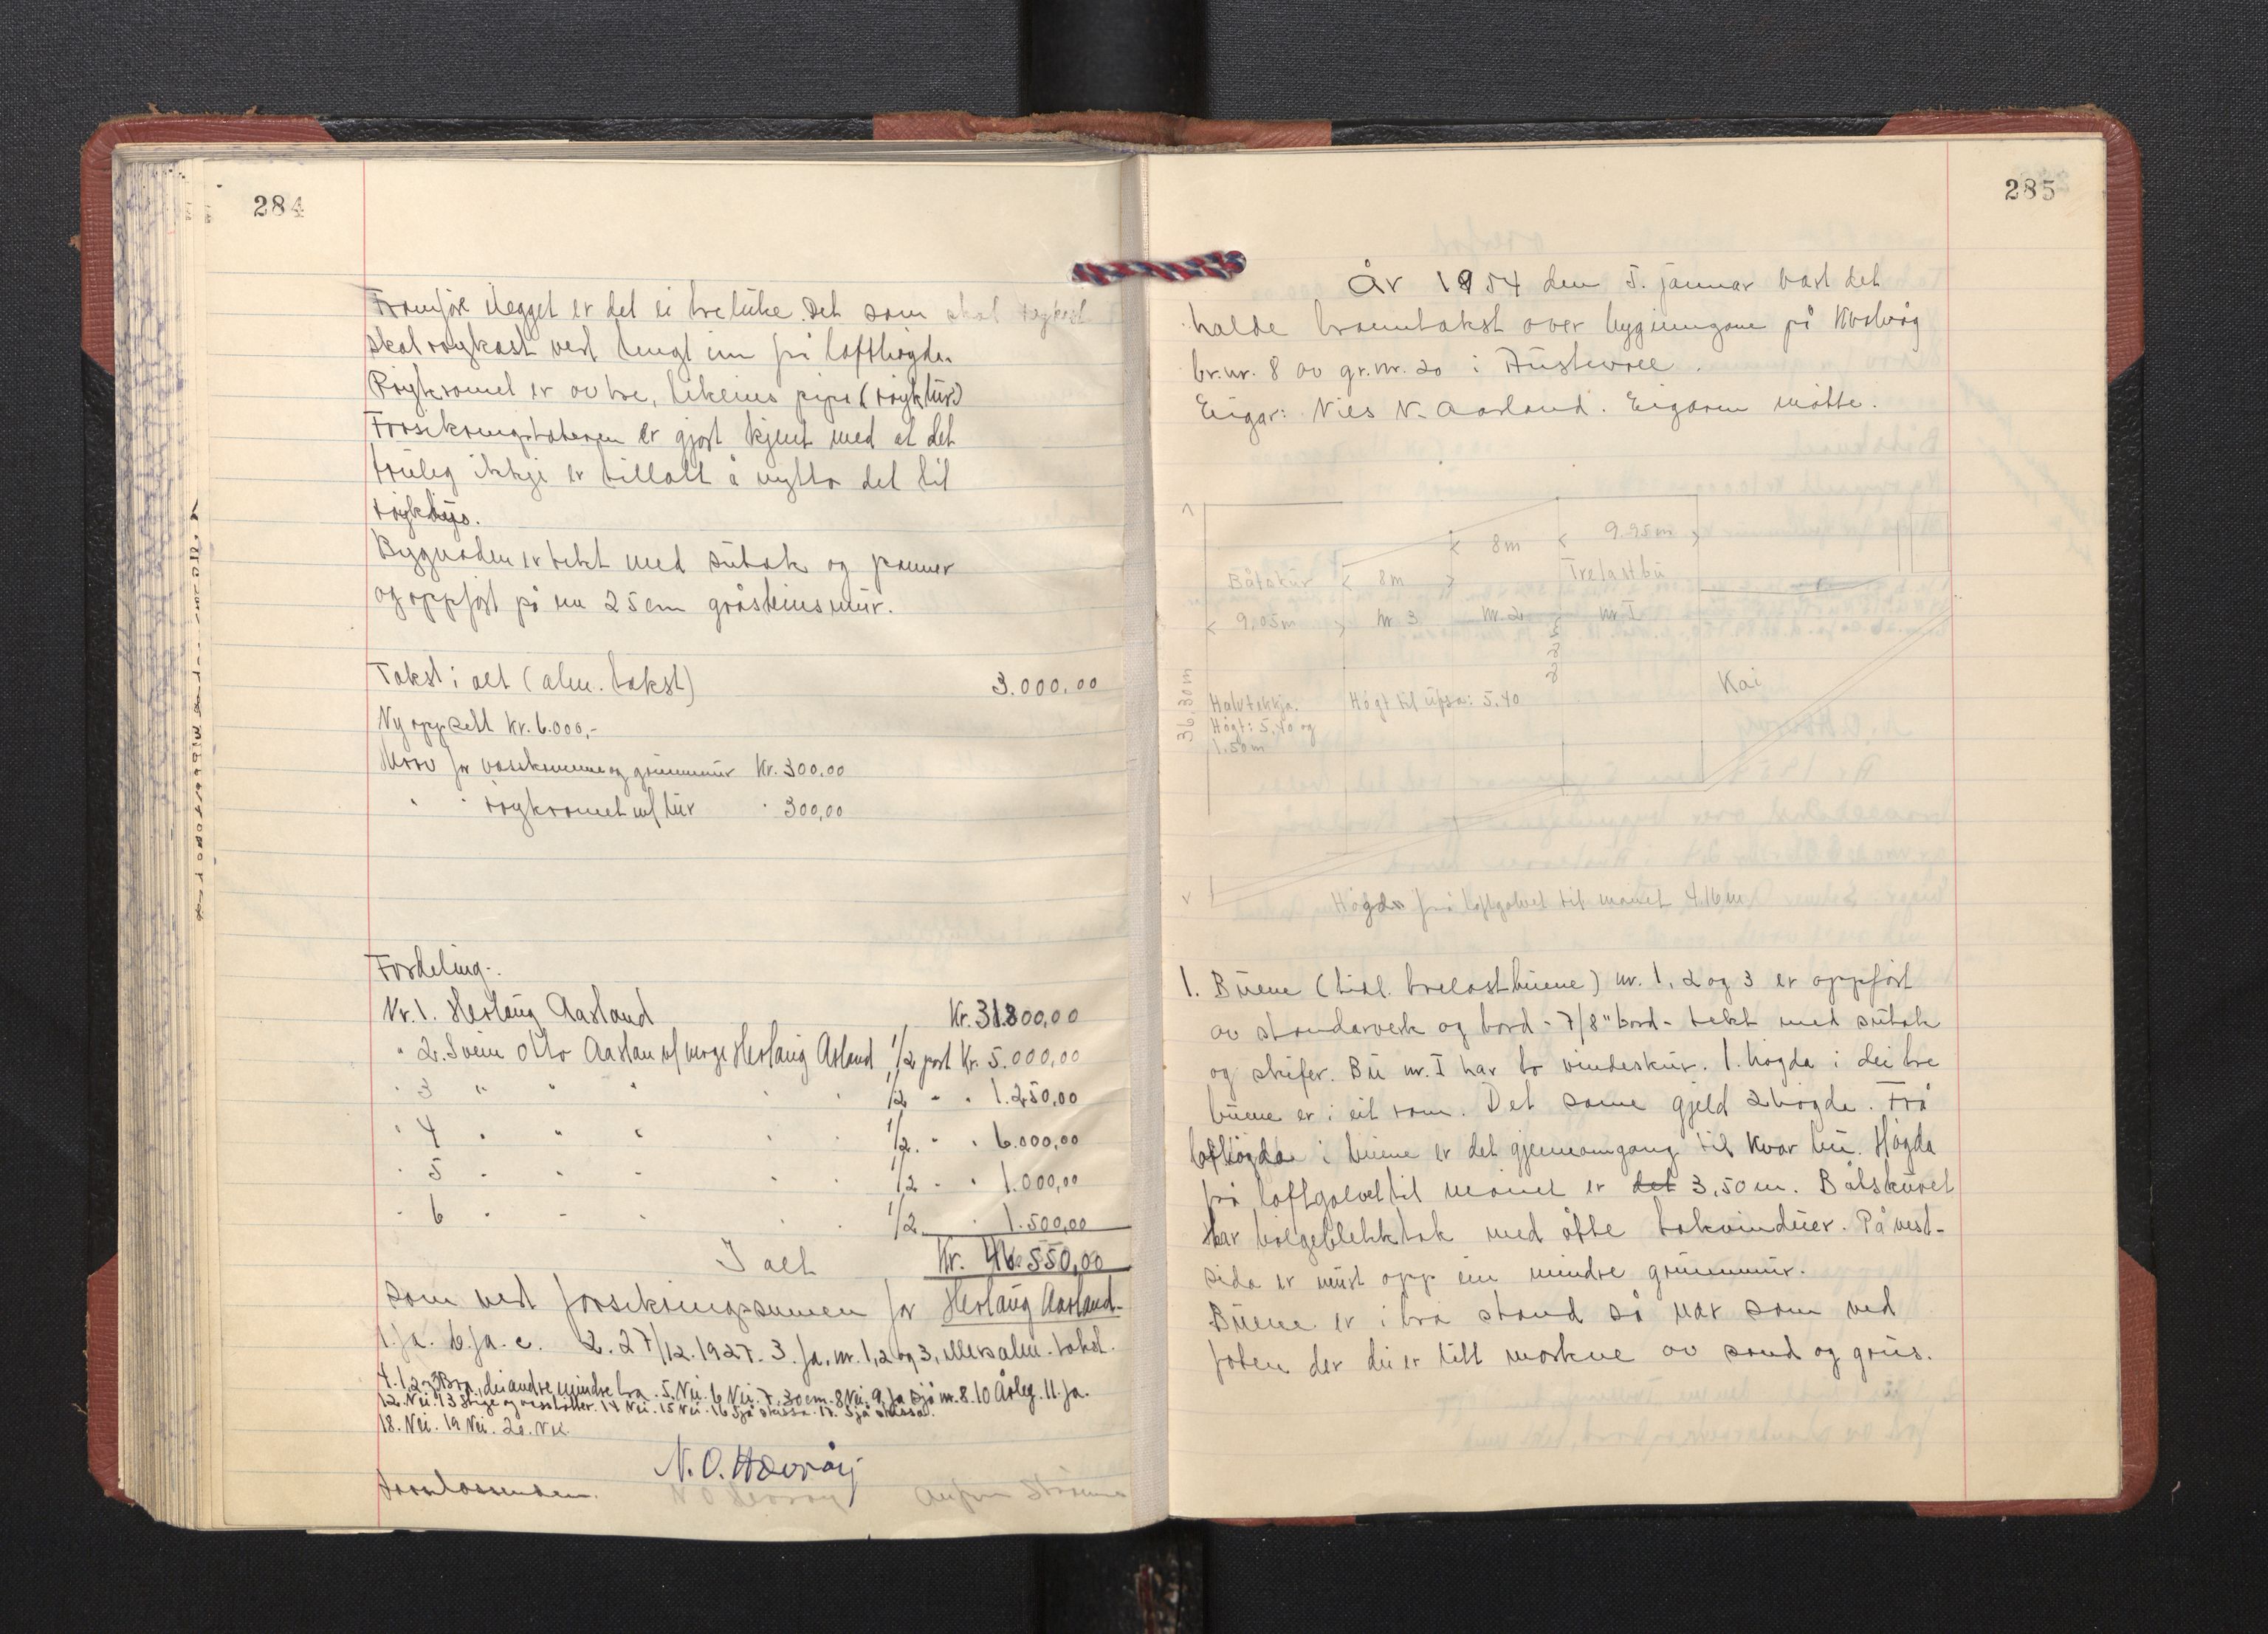 284
Framför vegget er det ei treluke. Det som skal røykast
skal røykast vert hengt inn på lofthøgda.
Røykromet er av tre, likeins pipa (røyktur)
Forsikringstakaren er gjort kjent med at det
truleg ikkje er tillatt å nytta det til
røykhus.
Bygnaden er tekt med sutak og panner
og oppført på um 25 cm gråsteinsmur.
Takst i alt (alm. takst) 3.000,00
Ny oppsett kr. 6.000,-
Herav for vaskeromme og grunnmur Kr. 300,00
" " røykromet m/ tur " 300,00
Fordeling:
Nr. 1. Herlaug Aarland Kr. 31.800,00
" 2. Svein Otto Aarlan v/ verge Herlaug Arland 1/2 part Kr. 5.000,00
" 3 " " " " " 1/2 " " 1.250,00
" 4 " " " " " 1/2 " " 6.000,00
" 5 " " " " " 1/2 " " 1.000,00
" 6 " " " " " 1/2 " 1.500,00
I alt Kr. 46.550,00
som vert forsikringssumen for Herlaug Aarland.
1. Ja. b. Ja. c. 2. 27/12.1927. 3. Ja, nr. 1, 2 og 3, elles alm. takst.
4. 1, 2 og 3 Bra, dei andre mindre bra. 5. Nei. 6 Nei. 7. 30 cm. 8 Nei. 9. Ja sjå nr. 8. 10 Årleg. 11. Ja.
12. Nei. 13 Stige og vassbøtter. 14 Nei. 15 Nei. 16 Sjå skissa. 17. Sjå skissa.
18. Nei. 19 Nei. 20. Nei.
N. O. Hevrøy
285
År 1954 den 5. januar vart det
halde branntakst over bygningane på Kvalvåg
br.nr. 8 av gr.nr. 20 i Austevoll.
Eigar: Nils N. Aarland. Eigaren møtte.
8 m 9.95 m
Båtskur 8 m Trelastbu
9,05 m nr 3 nr. 2 nr. I
36,30 m
Halvtekkja.
Høgt: 5,40 og
1.50 m
Høgt til upsa: 5.40
Kai
Høgda frå loftgolvet til mønet 4.16 m
1. Buene (tidl. trelastbuene) nr. 1, 2 og 3 er oppført
av standarverk og bord - 7/8" bord - tekt med sutak
og skifer. Bu nr. I har to vindeskur. 1. høgda i dei tre
buene er i eit rom. Det same gjeld 2 høgda. Frå
lofthøgda i buene er det gjennomgang til kvar bu. Høgda
frå loftgolvet til mønet er det 3,50 m. Båtskuret
har bølgeblekktak med åtte takvinduer. På vest-
sida er murt opp ein mindre grunnmur.
Buene er i bra stand så nær som ved
foten der dei er litt morkne av sand og grus.